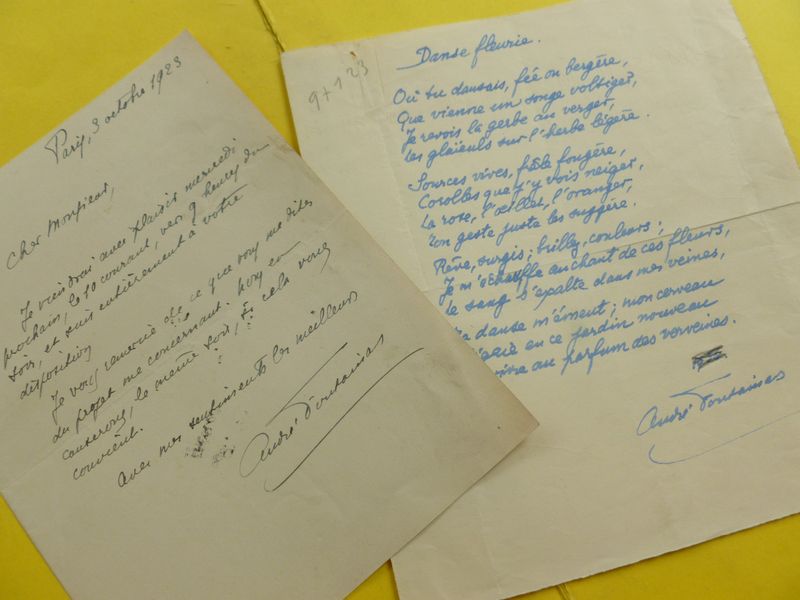 Paris, 3 octobre 1923
Cher Monsieur,
Je viendrai avec plaisir mercredi
prochain, le 10 courant, vers 9 heures du
soir, et suis entièrement à votre
disposition
Je vous remercie de ce que vous me dites
du projet me concernant. Nous en
causerons, le même soir, si cela vous
convient.
Avec mes sentiments les meilleurs
André Fontainas
9+123
Danse fleurie.
Où tu dansais, fée ou bergère,
Que vienne un songe voltiger,
Je revois la gerbe au verger,
Les glaïeuls sur l'herbe légère.
Sources vives, frêle fougère,
Corolles que j'y vois neiger,
La rose, l'œillet, l'oranger,
Ton geste juste les suggère.
Rêve, surgis; brillez, couleurs;
Je m'échauffe au chant de ces fleurs,
Le sang s'exalte dans mes veines,
danse m'émeut; mon cerveau
en ce jardin nouveau
au parfum des verveines.
André Fontainas